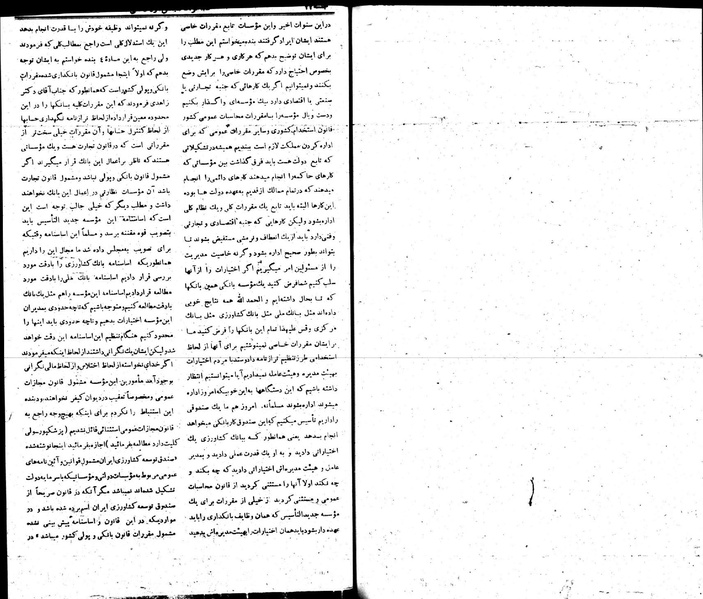 جلسه
در این سنوات اخیر و این مؤسسات تابع مقررات خاصی
هستند ایشان ایراد گرفتند بنده میخواستم این مطلب را
برای ایشان توضیح بدهم که هر کاری و هر کار جدیدی
بخصوص احتیاج دارد که مقررات خاصی را برایش وضع
بکنند و نمیتوانیم اگر یک کارهائی که جنبه تجارتی یا
صنعتی یا اقتصادی دارد بیک مؤسسه‌ای واگذار بکنیم
و دست و بال مؤسسه را با مقررات محاسبات عمومی کشور
قانون استخدام کشوری و سایر مقررات عمومی که برای
اداره کردن مملکت لازم است ببندیم همیشه در تشکیلاتی
که تابع دولت هست باید فرق گذاشت بین مؤسساتی که
کارهای حاکمه را انجام میدهند کارهای دائمی را انجام
میدهند که در تمام ممالک از قدیم بعهده دولت ها بوده
این کارها البته باید تابع یک مقررات کلی و یک نظام کلی
اداره بشود ولیکن کارهایی که جنبه اقتصادی و تجارتی
و فنی دارد باید از یک انعطاف و نرمشی مستفیض بشوند تا
بتواند بطور صحیح اداره بشود و گرنه خاصیت مدیریت
را از مسئولین امر میگیریم اگر اختیارات را از آنها
سلب کنیم شما فرض کنید یک مؤسسه بانکی همین بانکها
که تا بحال داشته‌ایم و الحمد الله همه نتایج خوبی
داده‌اند مثل بانک ملی مثل بانک کشاورزی مثل بانک
مرکزی وقس علیهذا تمام این بانکها را فرض کنید ما
بر ایشان مقررات خاصی نمینوشتیم برای آنها از لحاظ
استخدامی طرز تنظیم ترازنامه داد و ستد با مردم اختیارات
بهیئت مدیره و هیئت عامله نمیدادیم آیا میتوانستیم انتظار
داشته باشیم که این دستگاهها به این خوبی که امروز اداره
میشوند اداره بشوند مسلماً نه. امروز هم ما یک صندوقی
را داریم تأسیس میکنیم که این صندوق کار بانکی میخواهد
انجام بدهد یعنی همانطور که ببانک کشاورزی یک
اختیاراتی دادید و به او یک قدرت عملی دادید و بمدیر
عامل و هیئت مدیره‌اش اختیاراتی دادید که چه بکند و
چه نکند اولا آنها را مستثنی کردید از قانون محاسبات
عمومی و مستثنی کردید از خیلی از مقررات برای یک
مؤسسه جدید التأسیس که همان وظایف بانکداری را باید
عهده دار بشود باید همان اختیارات را بهیئت مدیره‌اش بدهید
و گرنه نمیتواند وظیفه خودش را با قدرت انجام بدهد
این یک استدلال کلی است راجع بمطالب کلی که فرمودند
ولی راجع به این ماده ٤ بنده خواستم به ایشان توجه
بدهم که اولا اینجا مشمول قانون بانکداری شده مقررات
بانکی و پولی کشور است که همانطور که جناب آقای دکتر
زاهدی فرمودند که این مقررات کلیه بانکها را در این
محدوده معین قرار داده از لحاظ ترازنامه نگهداری حسابها
از لحاظ کنترل حسابها و آن مقررات خیلی سخت‌تر از
مقرراتی است که در قانون تجارت هست و یک مؤسساتی
هستند که ناظر بر اعمال این بانک قرار میگیرند اگر
مشمول قانون بانکی و پولی نباشد و مشمول قانون تجارت
باشد آن مؤسسات نظارتی در اعمال این بانک نخواهند
داشت و مطلب دیگر که خیلی جالب توجه است این
است که اساسنامه این مؤسسه جدید التأسیس باید
بتصویب قوه مقننه برسد و مسلماً این اساسنامه وقتیکه
برای تصویب به مجلس داده شد ما مجال این را داریم
همانطوریکه اساسنامه بانک کشاورزی را با دقت مورد
بررسی قرار دادیم اساسنامه بانک ملی را با دقت مورد
مطالعه قرار دادیم اساسنامه این مؤسسه را هم مثل یک بانک
با دقت مطالعه کنیم و متوجه باشیم که تا چه حدودی بمدیران
این مؤسسه اختیارات بدهیم و تا چه حدودی باید اینها را
محدود کنیم هنگام تنظیم این اساسنامه این دقت خواهد
شد ولیکن ایشان یک نگرانی داشتند از لحاظ اینکه میفرمودند
اگر خدای نخواسته از لحاظ اختلاس و از لحاظ مالی نگرانی
بوجود آمد مأمورین این مؤسسه مشمول قانون مجازات
عمومی و مخصوصاً تعقیب در دیوان کیفر نخواهند بود بنده
این استنباط را نکردم برای اینکه بهیچوجه راجع به
قانون مجازات عمومی استثنائی قائل نشدیم (پزشکپور ـ ولی
کلیت دارد مطالعه بفرمائید) اجازه بفرمائید اینجا نوشته شده
«صندوق توسعه کشاورزی ایران مشمول قوانین و آئین‌نامه‌های
عمومی مربوط به مؤسسات دولتی و مؤسساتیکه با سرمایه دولت
تشکیل شده‌اند نمیباشد مگر آنکه در قانون صریحاً از
صندوق توسعه کشاورزی ایران اسم برده شده باشد و در
مواردیکه در این قانون و اساسنامه پیش بینی نشده
مشمول مقررات قانون بانکی و پولی کشور میباشد» در